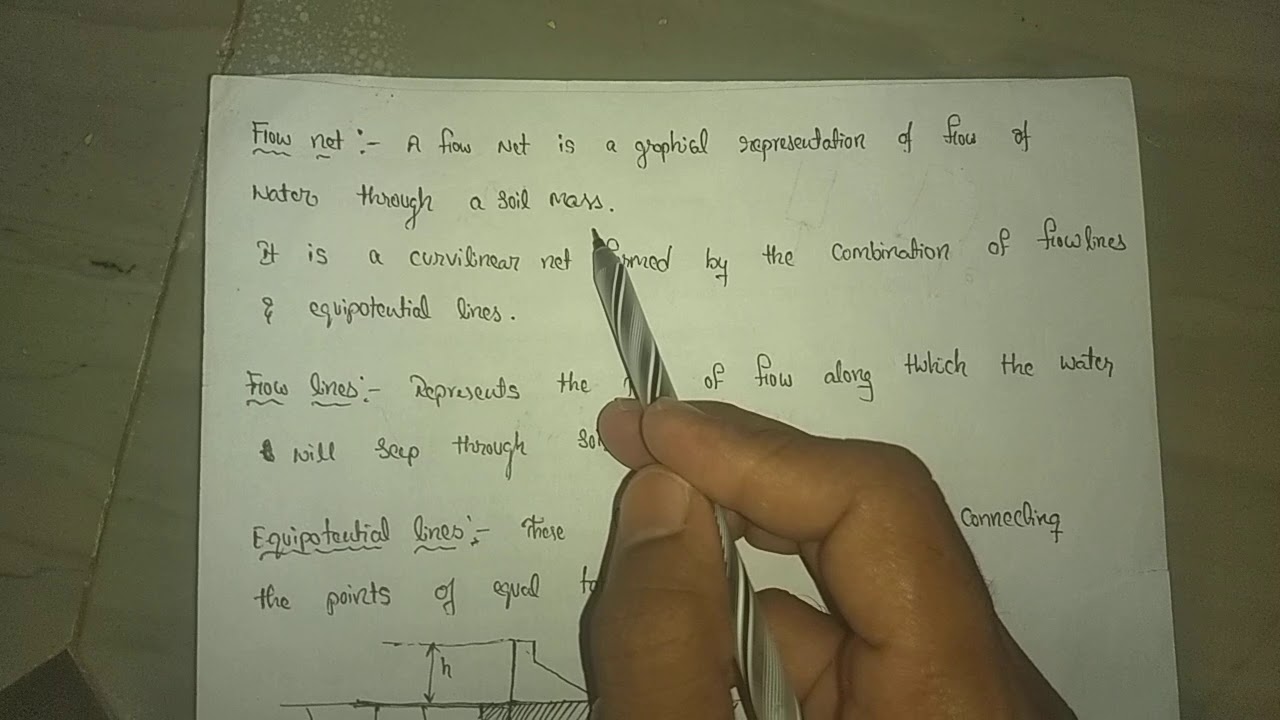 Flow net :- A flow Net is a graphial representation of flow of
Water through a soil mass.
It is a curvilinear net formed by the combination of flowlines
& equipotential lines.
Flow lines :- Represents the of flow along which the water
will seep through
Equipotential lines :- These connecting
the points of equal
h